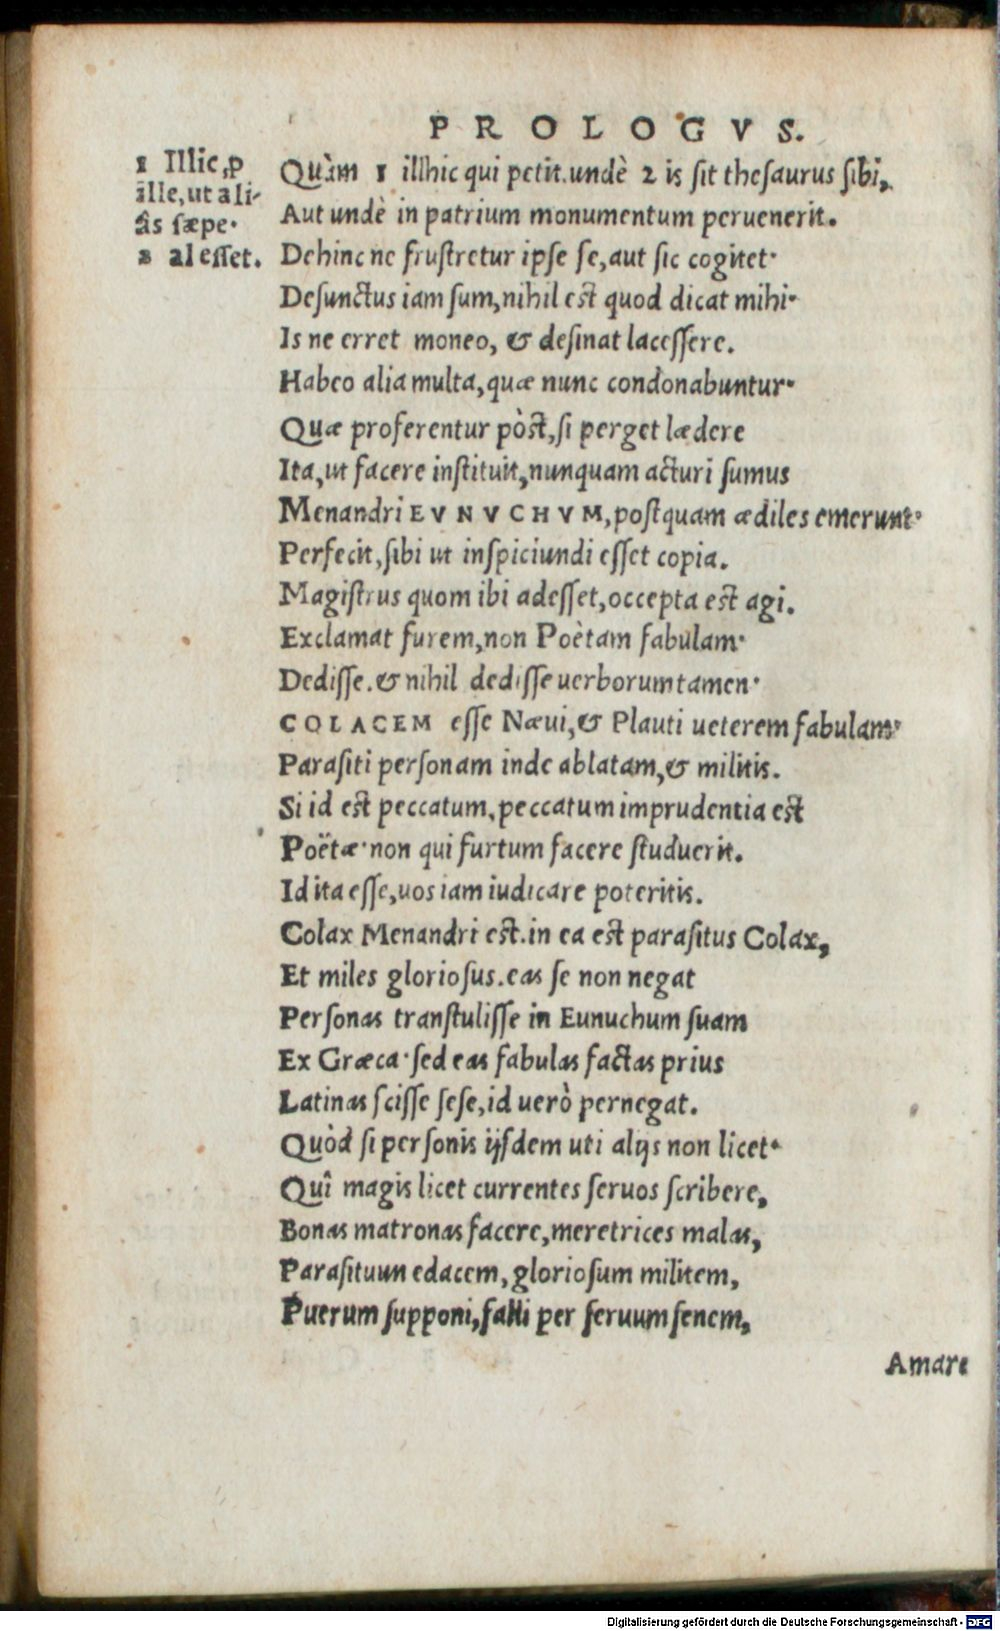 PROLOGVS.
1 Illic, ꝑ
ille, ut ali-
âs sæpe.
2 al esset.
Quàm 1 illhic qui petit. undè 2 is sit thesaurus sibi,
Aut undè in patrium monumentum peruenerit.
Dehinc ne frustretur ipse se, aut sic cogitet.
Defunctus iam sum, nihil est quod dicat mihi.
Is ne erret moneo, & desinat lacessere.
Habeo alia multa, quæ nunc condonabuntur.
Quæ proferentur pòst, si perget lædere
Ita, ut facere instituit, nunquam acturi sumus
Menandri EVNVCHVM, postquam ædiles emerunt.
Perfecit, sibi ut inspiciundi esset copia.
Magistrus quom ibi adesset, occepta est agi.
Exclamat furem, non Poètam fabulam.
Dedisse. & nihil dedisse uerborum tamen.
COLACEM esse Næui, & Plauti ueterem fabulam.
Parasiti personam inde ablatam, & militis.
Si id est peccatum, peccatum imprudentia est
Poëtæ. non qui furtum facere studuerit.
Id ita esse, uos iam iudicare poteritis.
Colax Menandri est. in ea est parasitus Colax,
Et miles gloriosus. eas se non negat
Personas transtulisse in Eunuchum suam
Ex Græca. sed eas fabulas factas prius
Latinas scisse sese, id uerò pernegat.
Quòd si personis ijsdem uti alijs non licet.
Quî magis licet currentes seruos scribere,
Bonas matronas facere, meretrices malas,
Parasituun edacem, gloriosum militem,
Puerum supponi, falli per seruum senem,
Amare
Digitalisierung gefördert durch die Deutsche Forschungsgemeinschaft - DFG